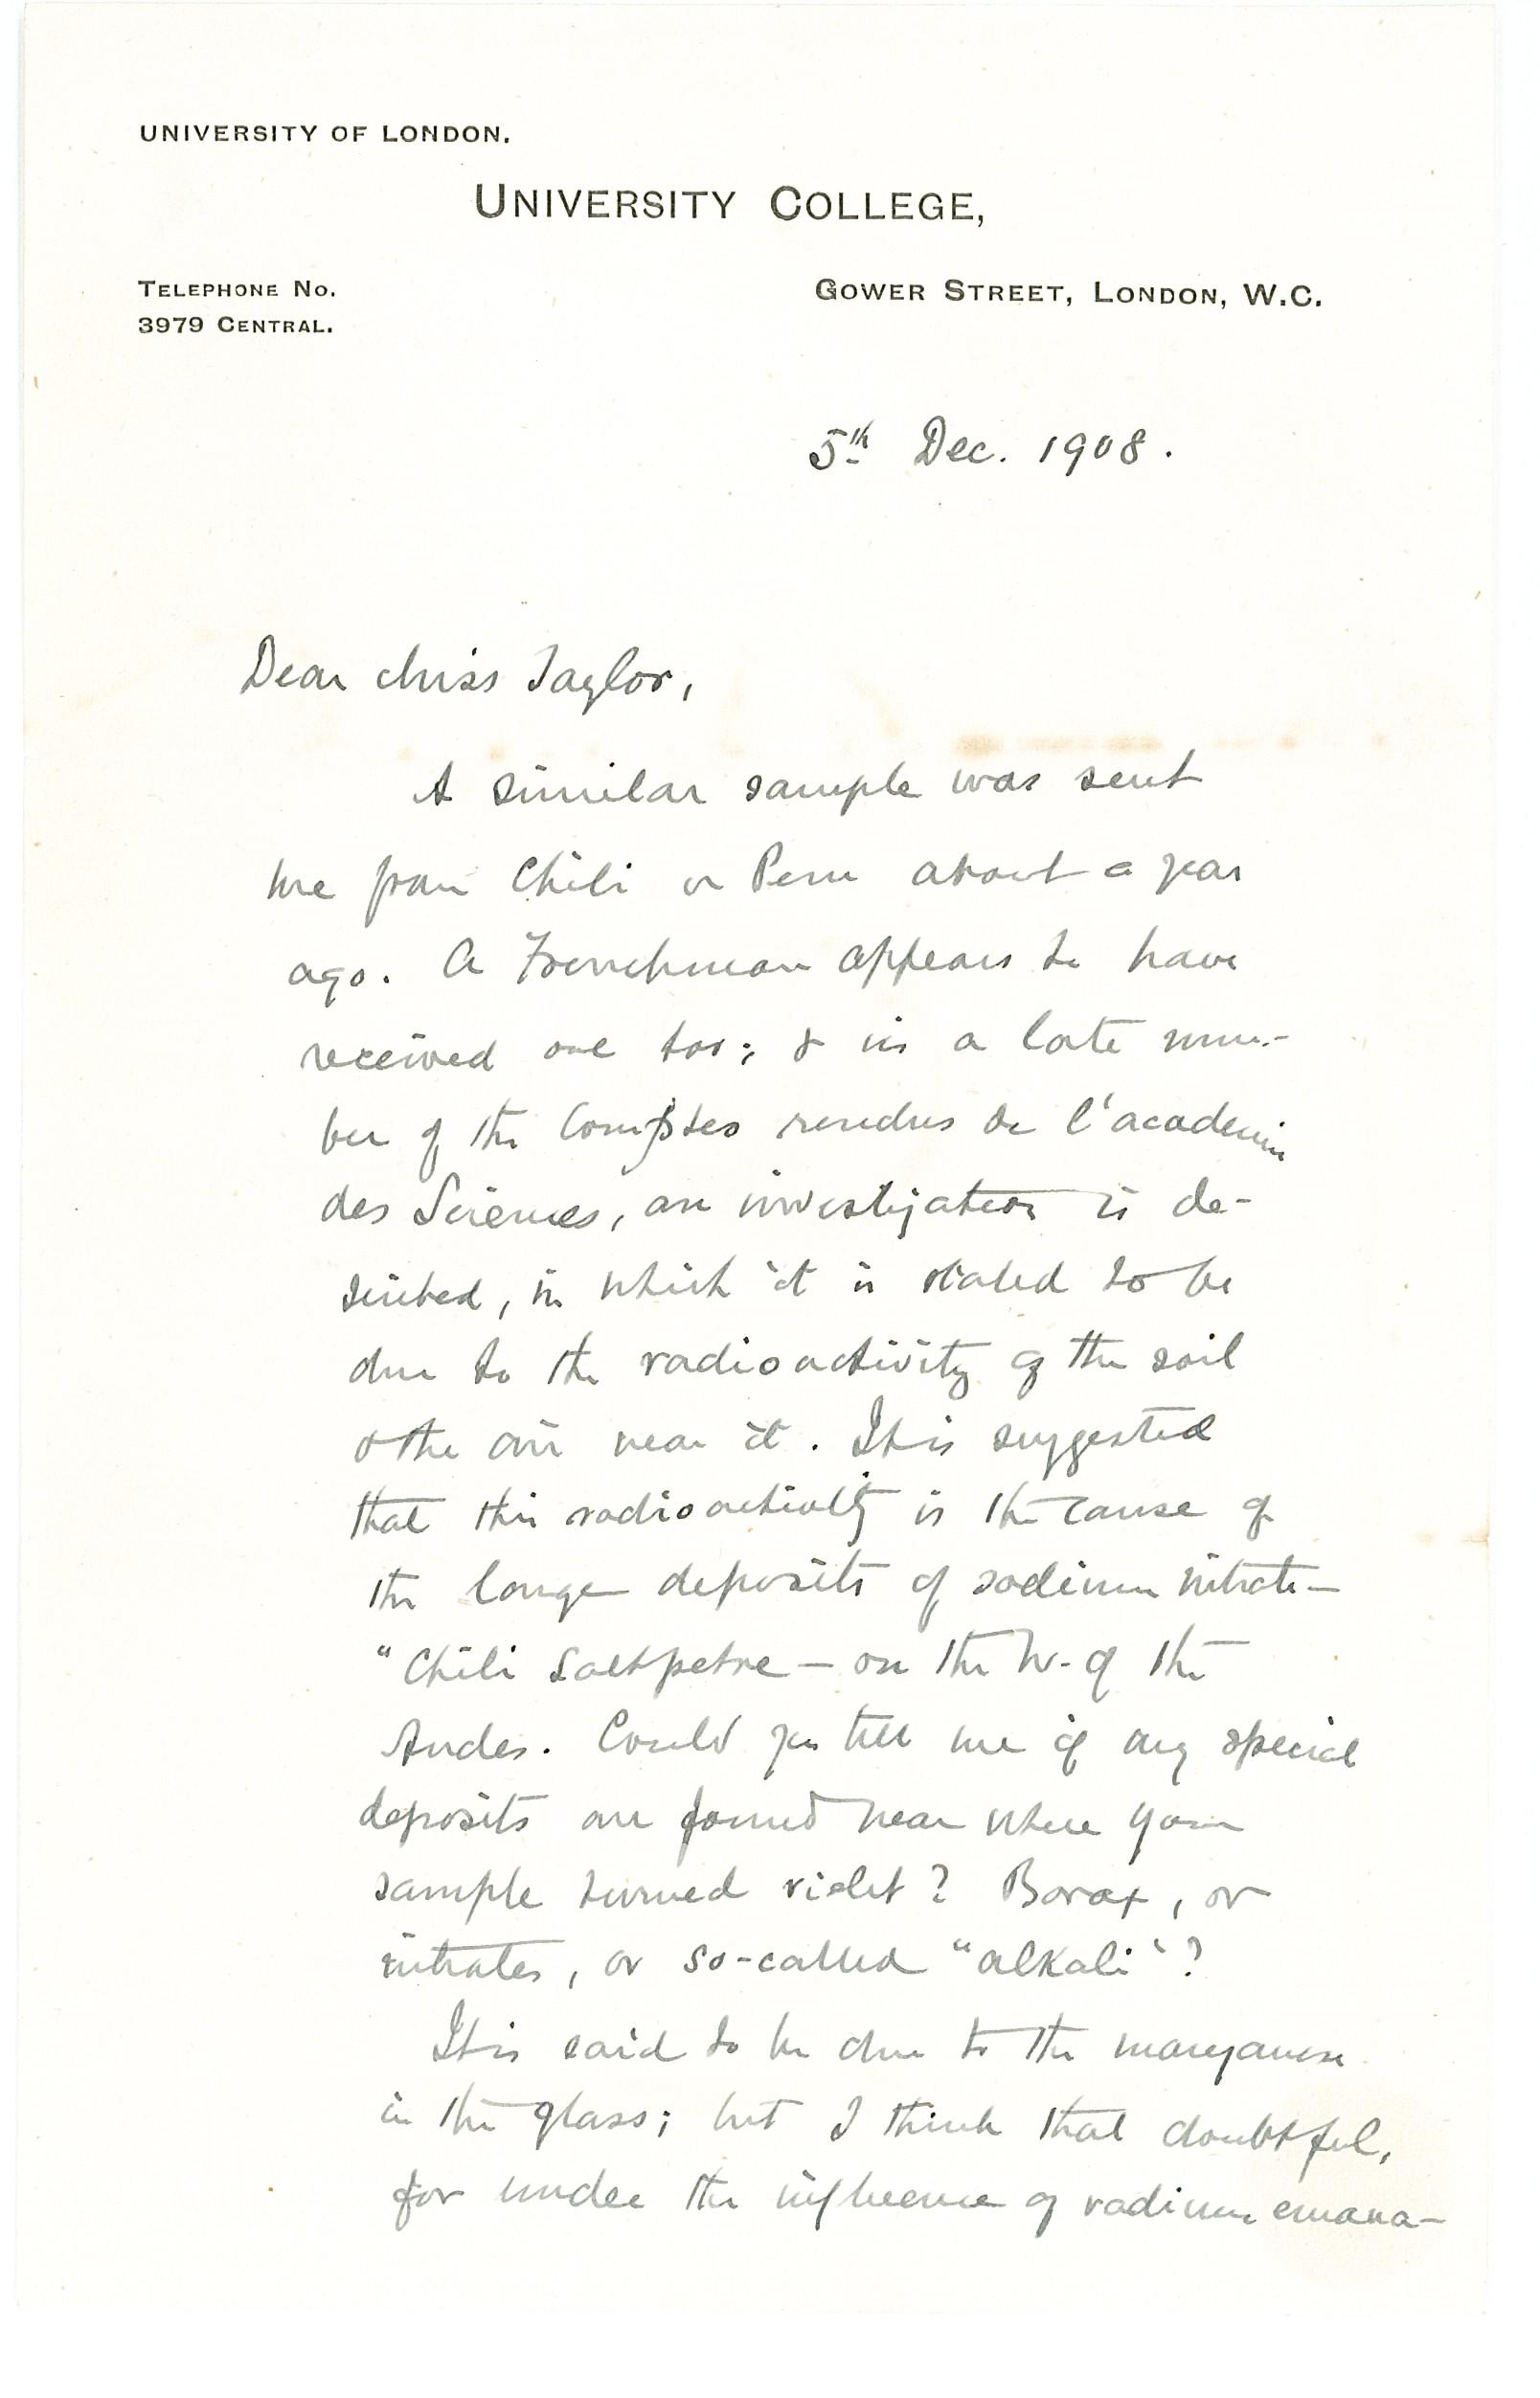 UNIVERSITY OF LONDON.
UNIVERSITY COLLEGE,
TELEPHONE No.
3979 CENTRAL.
GOWER STREET, LONDON, W.C.
5th Dec. 1908.
Dear Miss Taylor,
A similar sample was sent
me from Chili or Peru about a year
ago. A Frenchman appears to have
received one too; & in a late num-
ber of the Comptes rendus de l'academie
des Sciences, an investigation is de-
scribed, in which it is stated to be
due to the radioactivity of the soil
& the air near it. It is suggested
that this radioactivity is the cause of
the large deposits of sodium nitrate—
"Chili Saltpetre — on the W. of the
Andes. Could you tell me if any special
deposits are found near where your
sample turned violet? Borax, or
nitrates, or so-called "alkali"?
It is said to be due to the manganese
in the glass; but I think that doubtful,
for under the influence of radium emana-